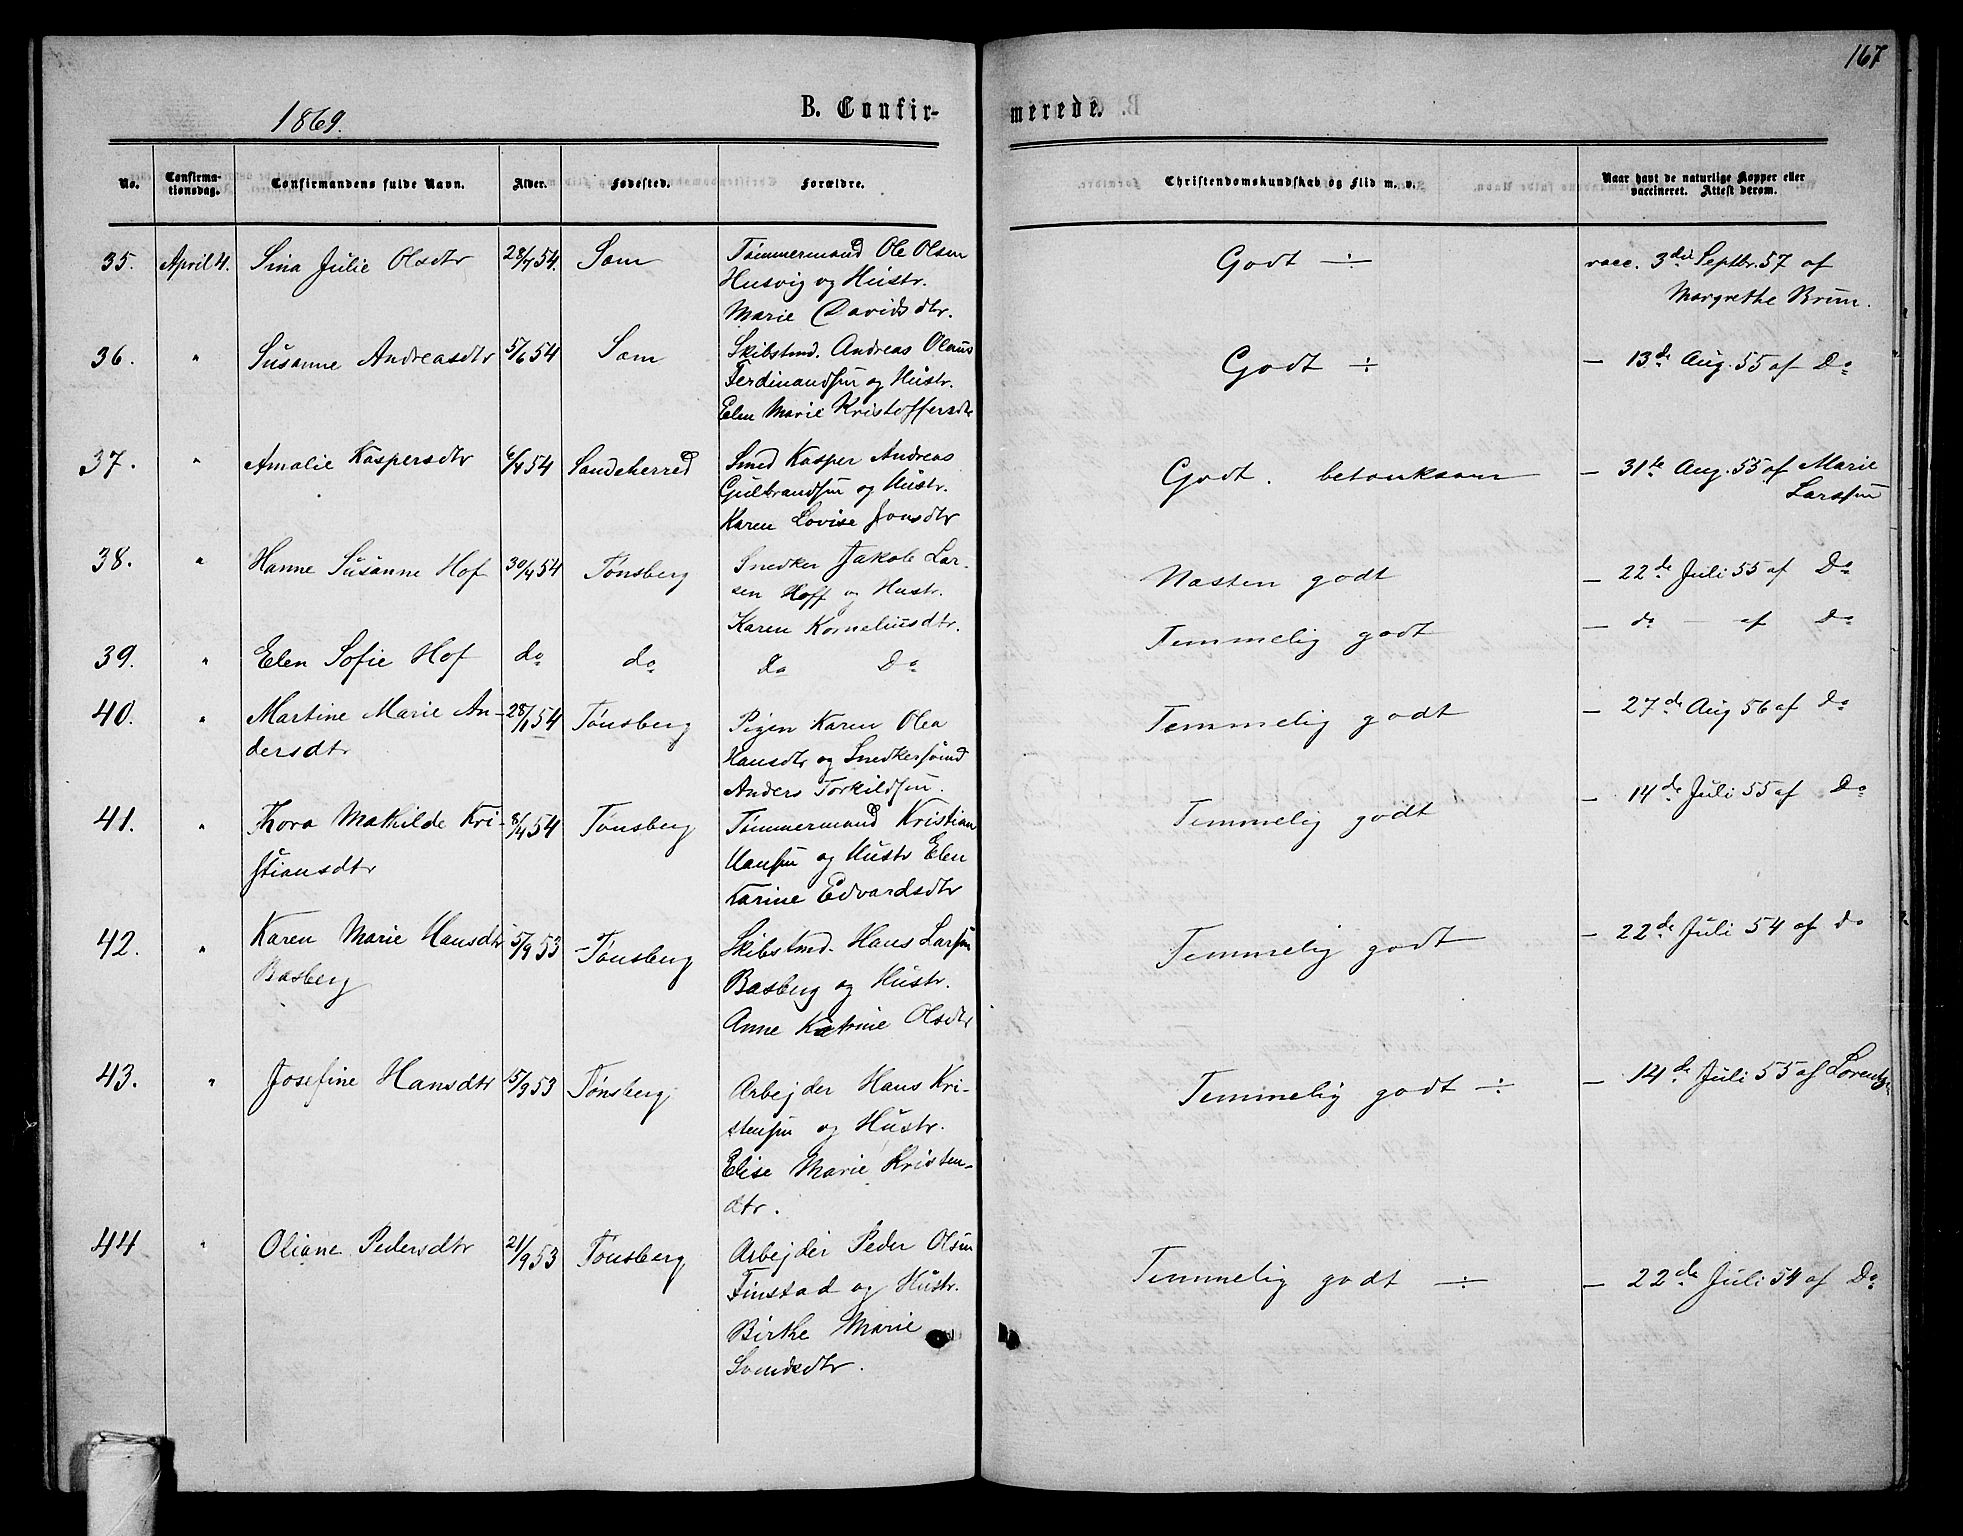 167
1869.
B. Confirmerede.
No. Confirmationsdag. Confirmandens fulde Navn. Alder. Fødested. Forældre. Christendomskundskab og Flid m. v. Naar havt de naturlige Kopper eller vaccineret. Attest derom.
35. April 4. Sina Julie Olsdtr 28/7 54. Sem Tømmermand Ole Olsen Godt ÷ vacc. 3die Septbr. 57 af
Husvig og Hustr. Margrethe Brun.
Marie Davidsdtr.
36. " Susanne Andreasdtr 5/6 54 Sem Skibstmd. Andreas Olaus Godt ÷ — 13de Aug. 55 af Do
Ferdinandsen og Hustr.
Elen Marie Kristoffersdtr
37. " Amalie Kaspersdtr 6/4 54 Sandeherred Smed Kasper Andreas Godt. betænksom — 31te Aug. 55 af Marie
Gulbrandsen og Hustr. Larssen
Karen Lovise Jonsdtr
38. " Hanne Susanne Hof 30/4 54 Tønsberg Snedker Jakob Lar- Næsten godt — 22de Juli 55 af Do
sen Hoff og Hustr.
Karen Korneliusdtr.
39. " Elen Sofie Hof do do do Do Temmelig godt — do — af Do
40. " Martine Marie An- 28/1 54 Tønsberg Pigen Karen Olea Temmelig godt — 27de Aug 56 af Do
dersdtr Hansdtr og Snedkersvend
Anders Torkildsen.
41. " Thora Mathilde Kri- 8/4 54 Tønsberg Tømmermand Kristian Temmelig godt — 14de Juli 55 af Do
stiansdtr Hansen og Hustr Elen
Karine Edvardsdtr
42. " Karen Marie Hansdtr 5/9 53 Tønsberg Skibstmd. Hans Larsen Temmelig godt — 22de Juli 54 af do
Basberg Basberg og Hustr.
Anne Katrine Olsdtr
43. " Josefine Hansdtr 15/9 53 Tønsberg Arbejder Hans Kri- Temmelig godt ÷ — 14de Juli 55 af Lorentzen
stensen og Hustr.
Elise Marie Kristen-
dtr.
44 " Oliane Pedersdtr 21/9 53 Tønsberg Arbejder Peder Olsen Temmelig godt ÷ — 22de Juli 54 af Do
Finstad og Hustr.
Birthe Marie
Svendsdtr.